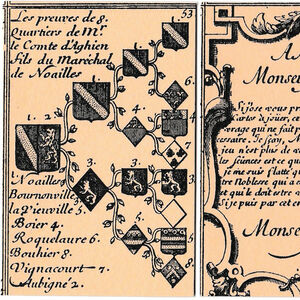 Les preuves de 8.
53
Quartiers de Mr.
le Comte d'Aghien
Fils du Maréchal
de Noailles
1.
1.
2.
1.
2.
3.
4.
3.
3.
5.
Noailles 1.
Bournonville 2.
la Vieuville 3.
Boier 4.
Roquelaure 5.
Bouhier 6.
Vignacourt 7.
Aubigné 2.
A S
Monse
Si j'ose vous p
Cartes de joüer, ce
ouvrage qui ne fait p
cessaire. Je sçay, M
n'est plus de
les Sciences est ce q
je me suis flatté q
tre Noblesse qui a
et qui le doit etre
Si je puis par cet e
Monse